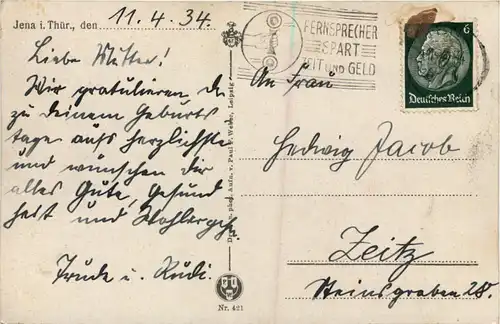 Jena i. Thür., den 11.4.34
Liebe Mutter!
Wir gratulieren dir
zu deinem Geburts
tage aufs herzlichste
und wünschen dir
alles Gute, Gesund
heit und Wohlergeh.
Trude u. Rudi.
Nr. 421
FERNSPRECHER
SPART
ZEIT UND GELD
6
Deutsches Reich
An Frau
Hedwig Jacob
Zeitz
Steinsgraben 28.